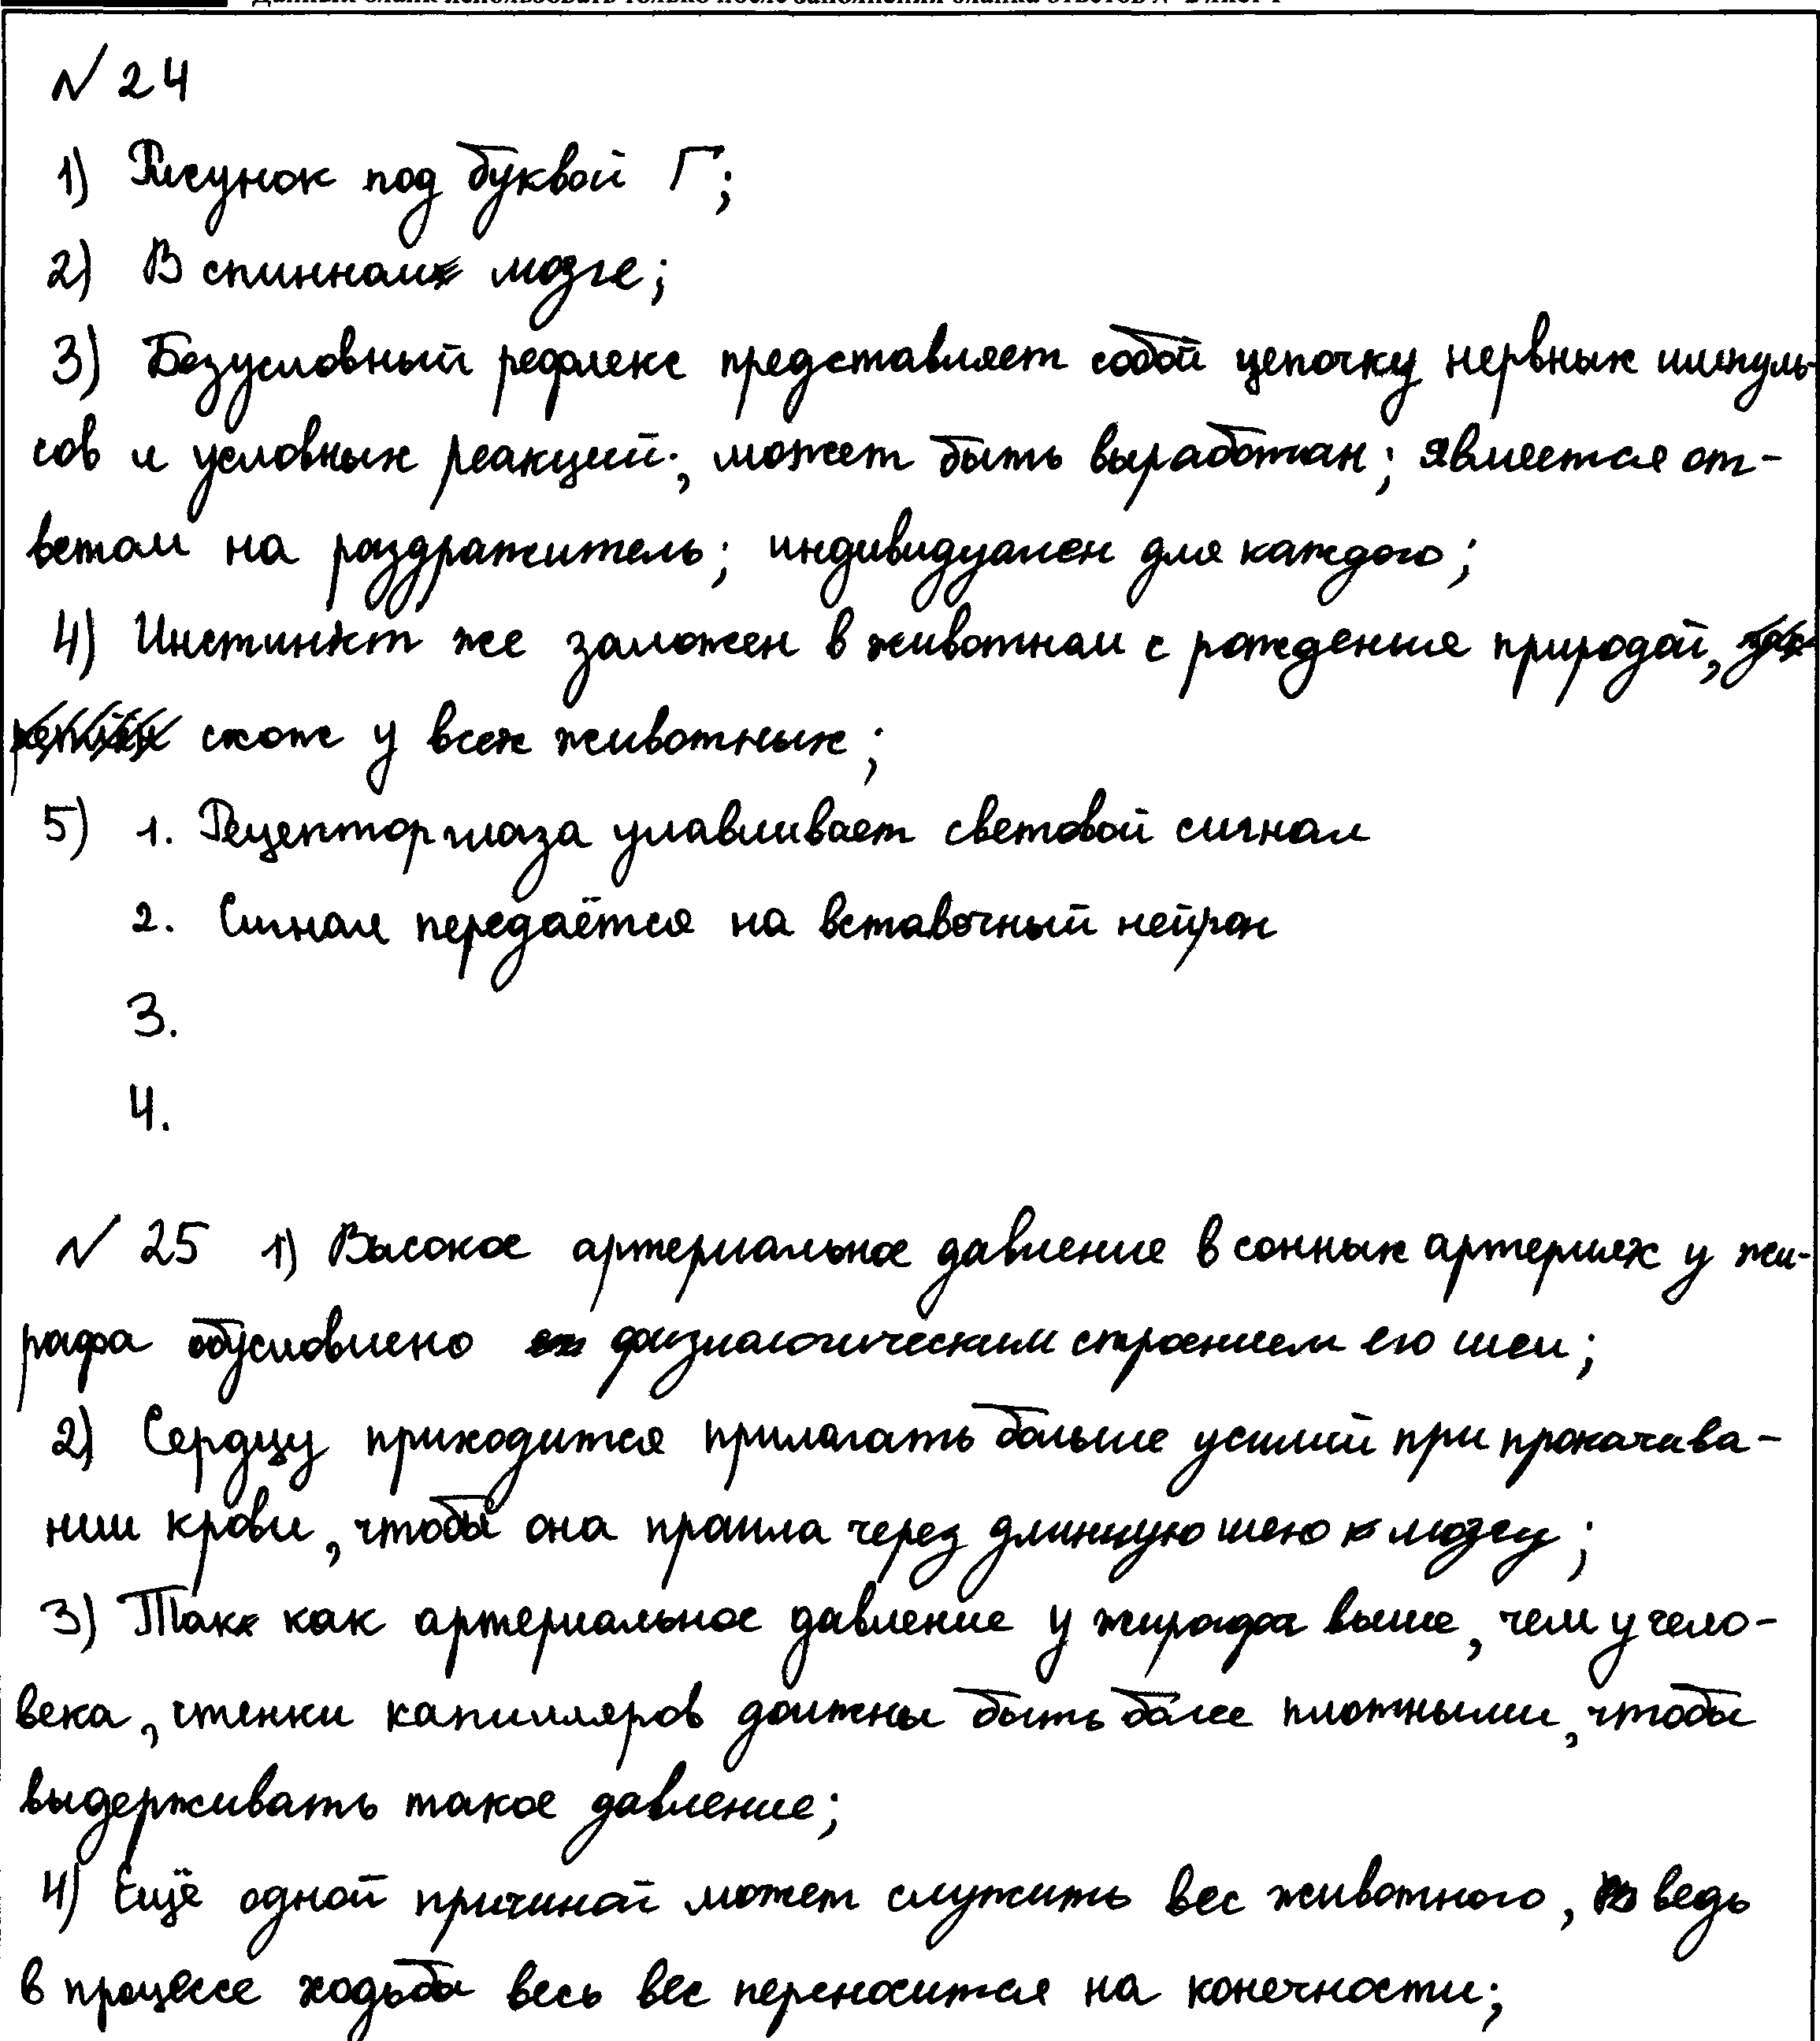 № 24
1) Рисунок под буквой Г;
2) В спинном мозге;
3) Безусловный рефлекс представляет собой цепочку нервных импуль-
сов и условных реакций; может быть выработан; является от-
ветом на раздражитель; индивидуален для каждого;
4) Инстинкт же заложен в животном с рождения природой,
схож у всех животных;
5) 1. Рецептор глаза улавливает световой сигнал
2. Сигнал передаётся на вставочный нейрон
3.
4.
№ 25 1) Высокое артериальное давление в сонных артериях у жи-
рафа обусловлено физиологическим строением его шеи;
2) Сердцу приходится прилагать больше усилий при прокачива-
нии крови, чтобы она прошла через длинную шею к мозгу;
3) Так как артериальное давление у жирафа выше, чем у чело-
века, стенки капилляров должны быть более плотными, чтобы
выдерживать такое давление;
4) Ещё одной причиной может служить вес животного, ведь
в процессе ходьбы весь вес переносится на конечности;